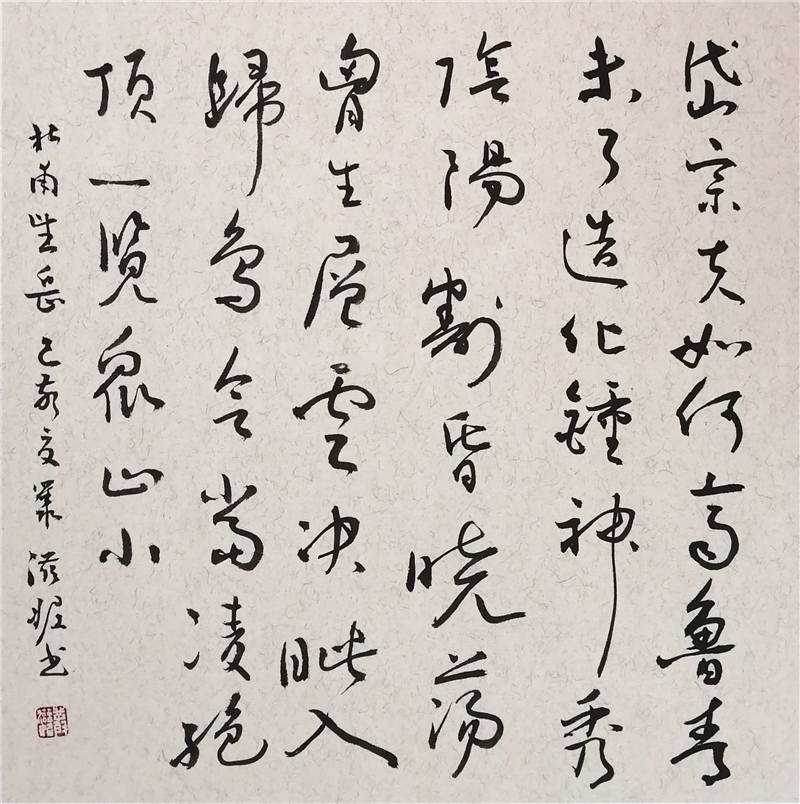 岱宗夫如何齊魯青
未了造化鍾神秀
陰陽割昏曉蕩
胷生層雲決眦入
歸鳥会當凌絕
頂一覽眾山小
杜甫望岳己亥夏書